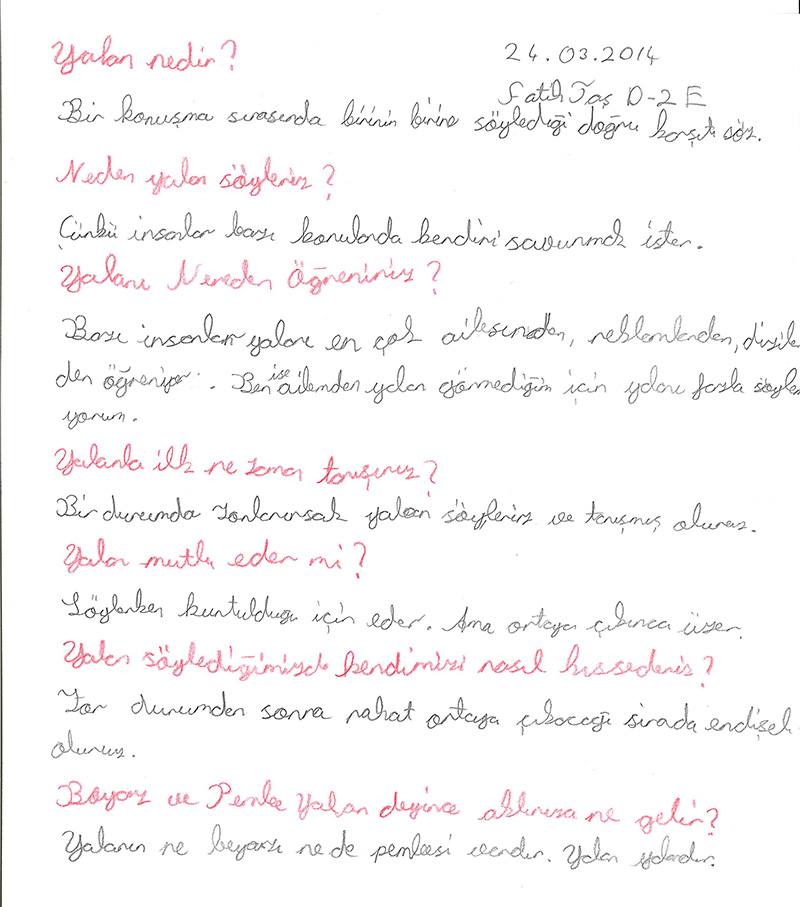 Yalan nedir?
24.03.2014
Fatih Taş D-2 E
Bir konuşma sırasında birinin birine söylediği doğru karşıtı söz.
Neden yalan söyleriz?
Çünkü insanlar bazı konularda kendini savunmak ister.
Yalanı Nereden Öğreniriz?
Bazı insanlar yalanı en çok ailesinden, reklamlardan, dizile
den öğreniyor. Ben ise ailemden yalan görmediğim için yalanı fazla söylem
yorum.
Yalanla ilk ne zaman tanışırız?
Bir durumda zorlanırsak yalan söyleriz ve tanışmış oluruz.
Yalan mutlu eder mi?
Söylerken kurtulduğu için eder. Ama ortaya çıkınca üzer.
Yalan söylediğimizde kendimizi nasıl hissederiz?
Zor durumdan sonra rahat ortaya çıkacağı sırada endişeli
oluruz.
Beyaz ve Pembe Yalan deyince aklınıza ne gelir?
Yalanın ne beyazı ne de pembesi vardır. Yalan yalandır.